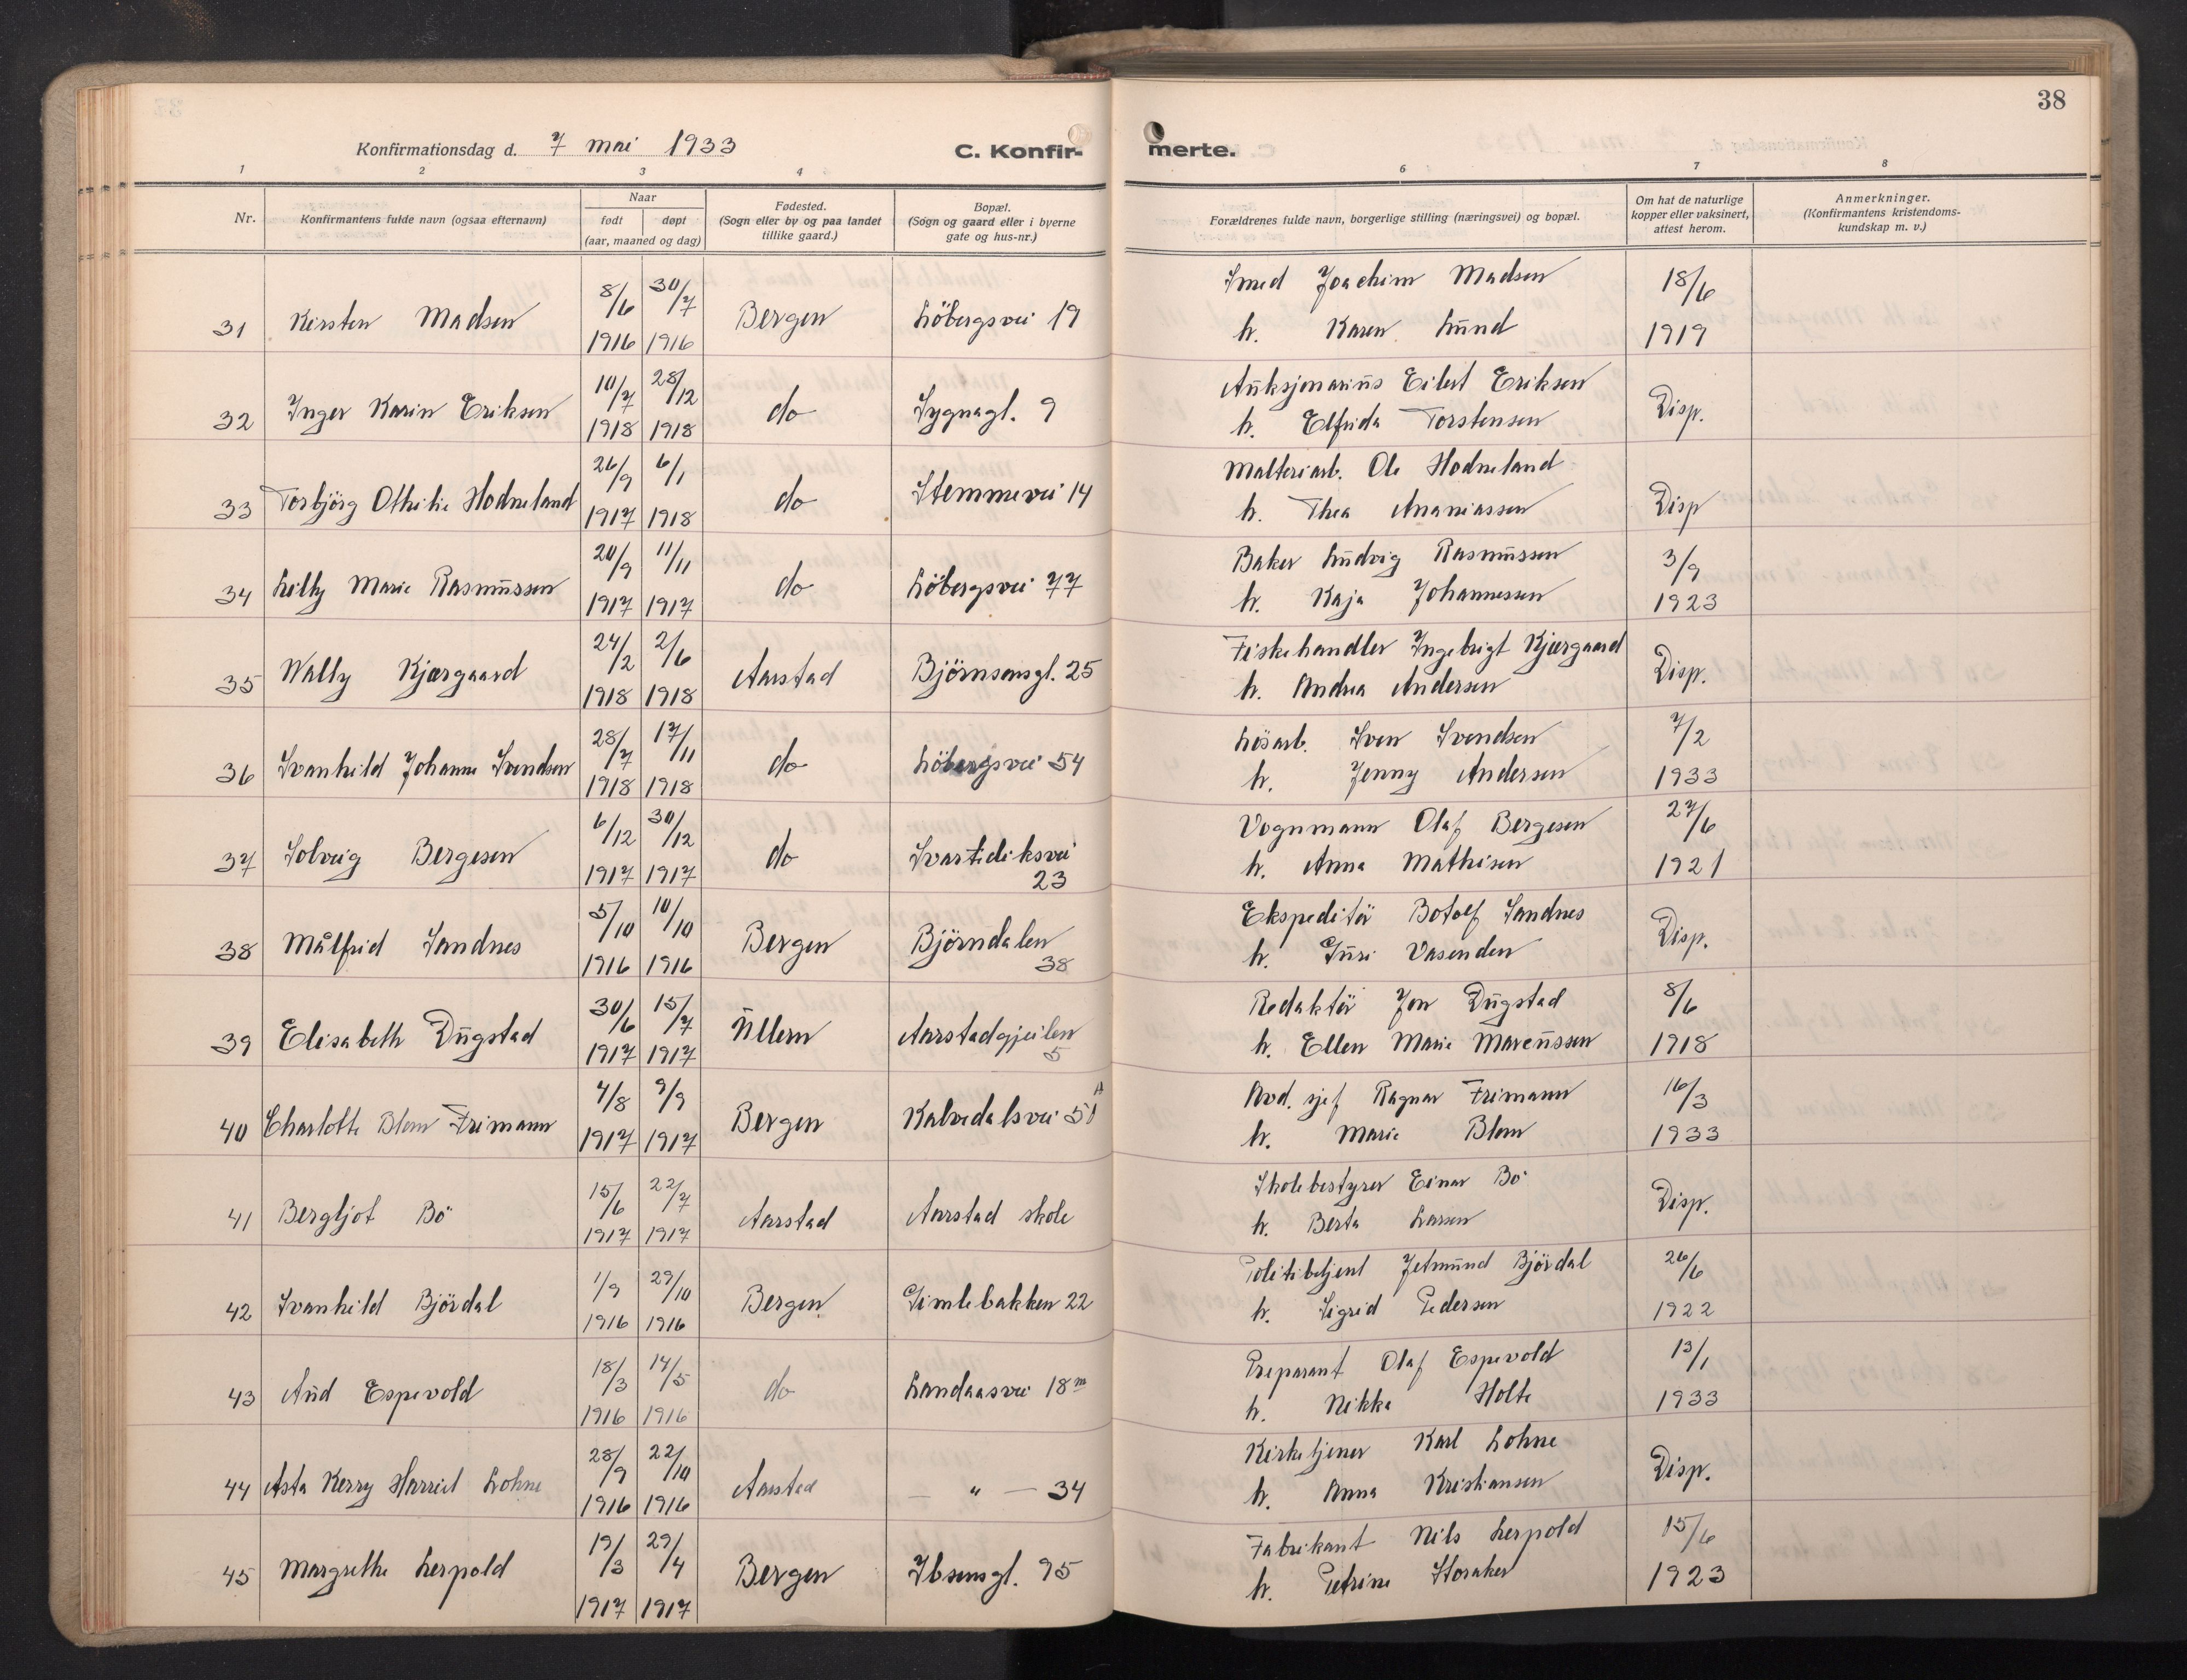 38
Konfirmationsdag d. 7 mai 1933
C. Konfirmerte.
1 2 3 4 6 7 8
Nr.
Konfirmantens fulde navn (ogsaa efternavn)
Naar
født døpt
(aar, maaned og dag)
Fødested.
(Sogn eller by og paa landet
tillike gaard.)
Bopæl.
(Sogn og gaard eller i byerne
gate og hus-nr.)
Forældrenes fulde navn, borgerlige stilling (næringsvei) og bopæl.
Om hat de naturlige
kopper eller vaksinert,
attest herom.
Anmerkninger.
(Konfirmantens kristendoms-
kundskap m. v.)
8/6 30/7 Smed Joachim Madsen 18/6
31 Kirsten Madsen 1916 1916 Bergen Löbergsvei 19 h. Karen Lund 1919
10/7 28/12 Auksjonarius Eilert Eriksen
32 Inger Karin Eriksen 1918 1918 do Sygnagt. 9 h. Elfrida Torstensen Disp.
26/9 6/1 Malteriarb. Ole Hodneland
33 Torbjörg Othilie Hodneland 1917 1918 do Stemmevei 14 h. Thea Ananiassen Disp
20/9 11/11 Baker Ludvig Rasmussen 3/9
34 Lilly Marie Rasmussen 1917 1917 do Löbergsvei 77 h. Kaja Johannessen 1923
24/2 2/6 Fiskehandler Ingebrigt Kjærgaard
35 Wally Kjærgaard 1918 1918 Aarstad Björnsonsgt. 25 h. Andrea Andersen Disp.
28/7 17/11 Lösarb. Sven Svendsen 7/2
36 Svanhild Johanne Svendsen 1918 1918 do Löbergsvei 54 h. Jenny Andersen 1933
6/12 30/12 Vognmann Olaf Bergesen 27/6
37 Solveig Bergesen 1917 1917 do Svartediksvei 23 h. Anna Mathisen 1921
5/10 10/10 Ekspeditör Botolf Sandnes
38 Målfrid Sandnes 1916 1916 Bergen Björndalen 38 h. Guri Vasenden Disp.
30/6 15/7 Redaktör Jon Dugstad 8/6
39 Elisabeth Dugstad 1917 1917 Ullern Aarstadgjeilen 5 h. Ellen Marie Marcussen 1918
4/8 9/9 Avd. sjef Ragnar Frimann 16/3
40 Charlotte Blom Frimann 1917 1917 Bergen Kalvedalsvei 51 A h. Marie Blom 1933
15/6 22/7 Skolebestyrer Einar Bö
41 Bergljot Bö 1917 1917 Aarstad Aarstad skole h. Berta Larsen Disp.
1/9 29/10 Politibetjent Jetmund Björdal 26/6
42 Svanhild Björdal 1916 1916 Bergen Gimlebakken 22 h. Sigrid Pedersen 1922
18/3 14/5 Preparant Olaf Espevold 13/1
43 Aud Espevold 1916 1916 do Landaasvei 18 m h. Nikka Holte 1933
28/9 22/10 Kirketjener Karl Lohne
44 Asta Kerry Harriet Lohne 1916 1916 Aarstad — " — 34 h. Anna Kristiansen Disp.
19/3 29/4 Fabrikant Nils Lerpold 15/6
45 Margrethe Lerpold 1917 1917 Bergen Ibsensgt. 95 h. Petrine Storaker 1923